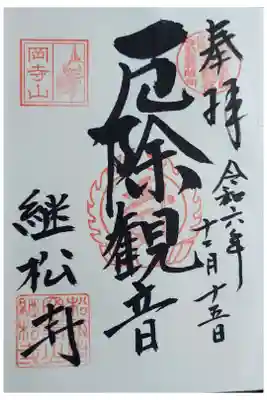 奉拝
令和六年
十二月十五日
厄除観音
岡寺山
継松寺